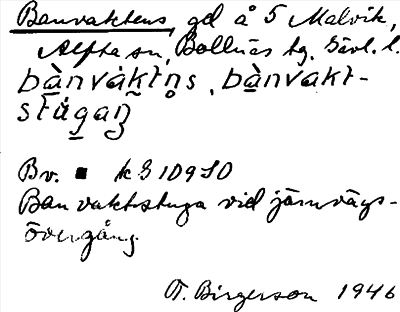 Banvaktens, gd å 5 Malvik,
Alfta sn, Bollnäs tg. Gävl. l.
bànvàktn̥s, bànvakt-
stúgaŋ
Bv. ▪ kg 10950
Banvaktstuga vid järnvägs-
övergång.
T. Birgerson 1946